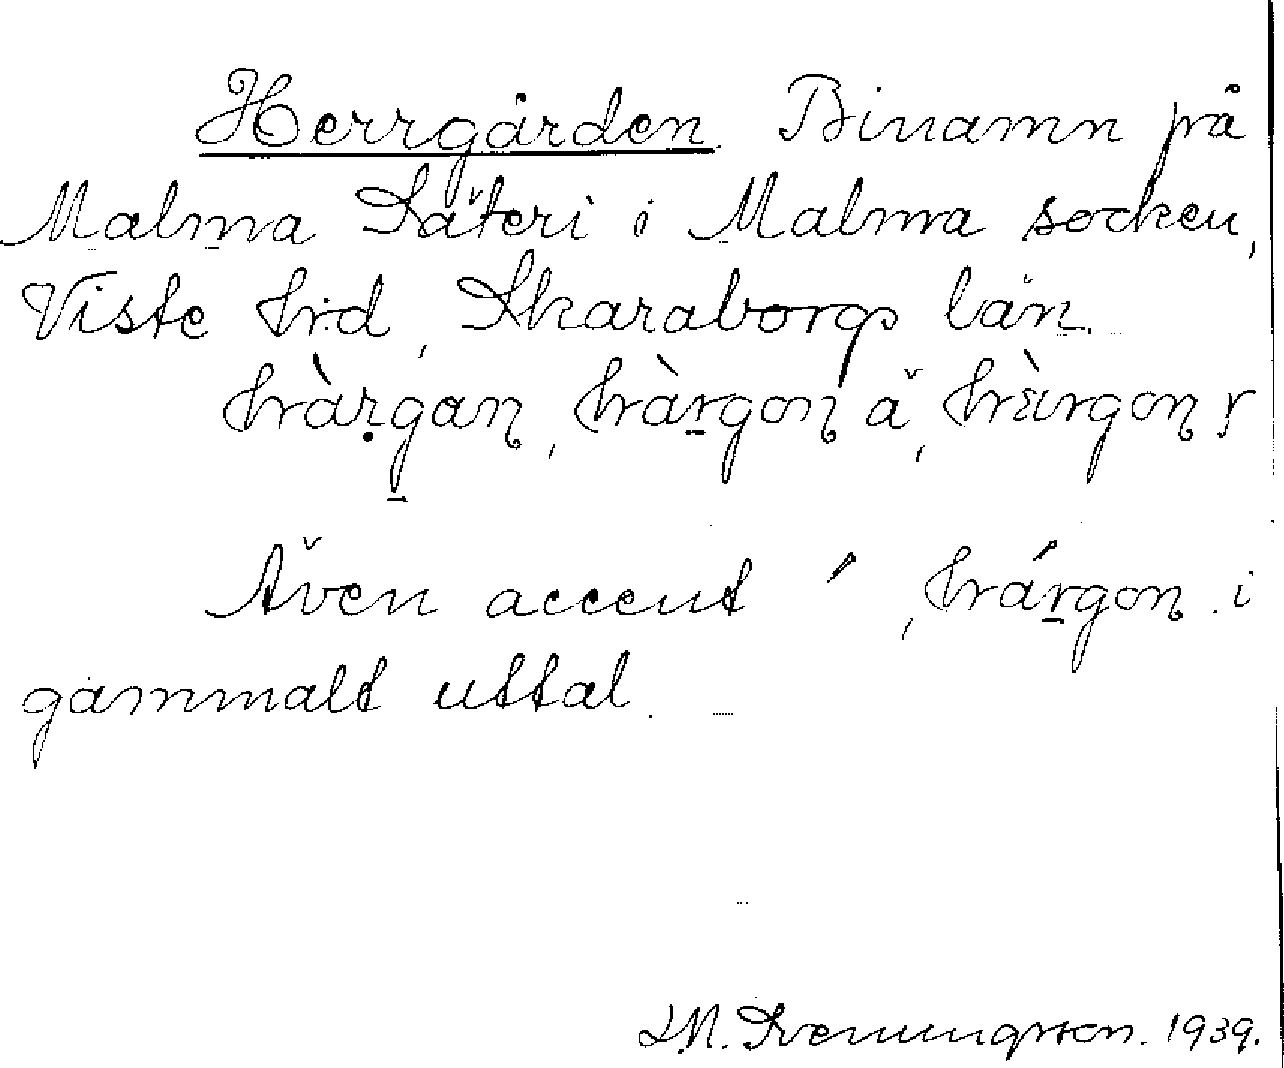 Herrgården. Binamn på
Malma Säteri i Malma socken,
Viste hrd, Skaraborgs län.
hàrgan, hàrgon ä, hàrgon
Även accent ´, hárgon i
gammalt uttal.
Sveningsson. 1939.